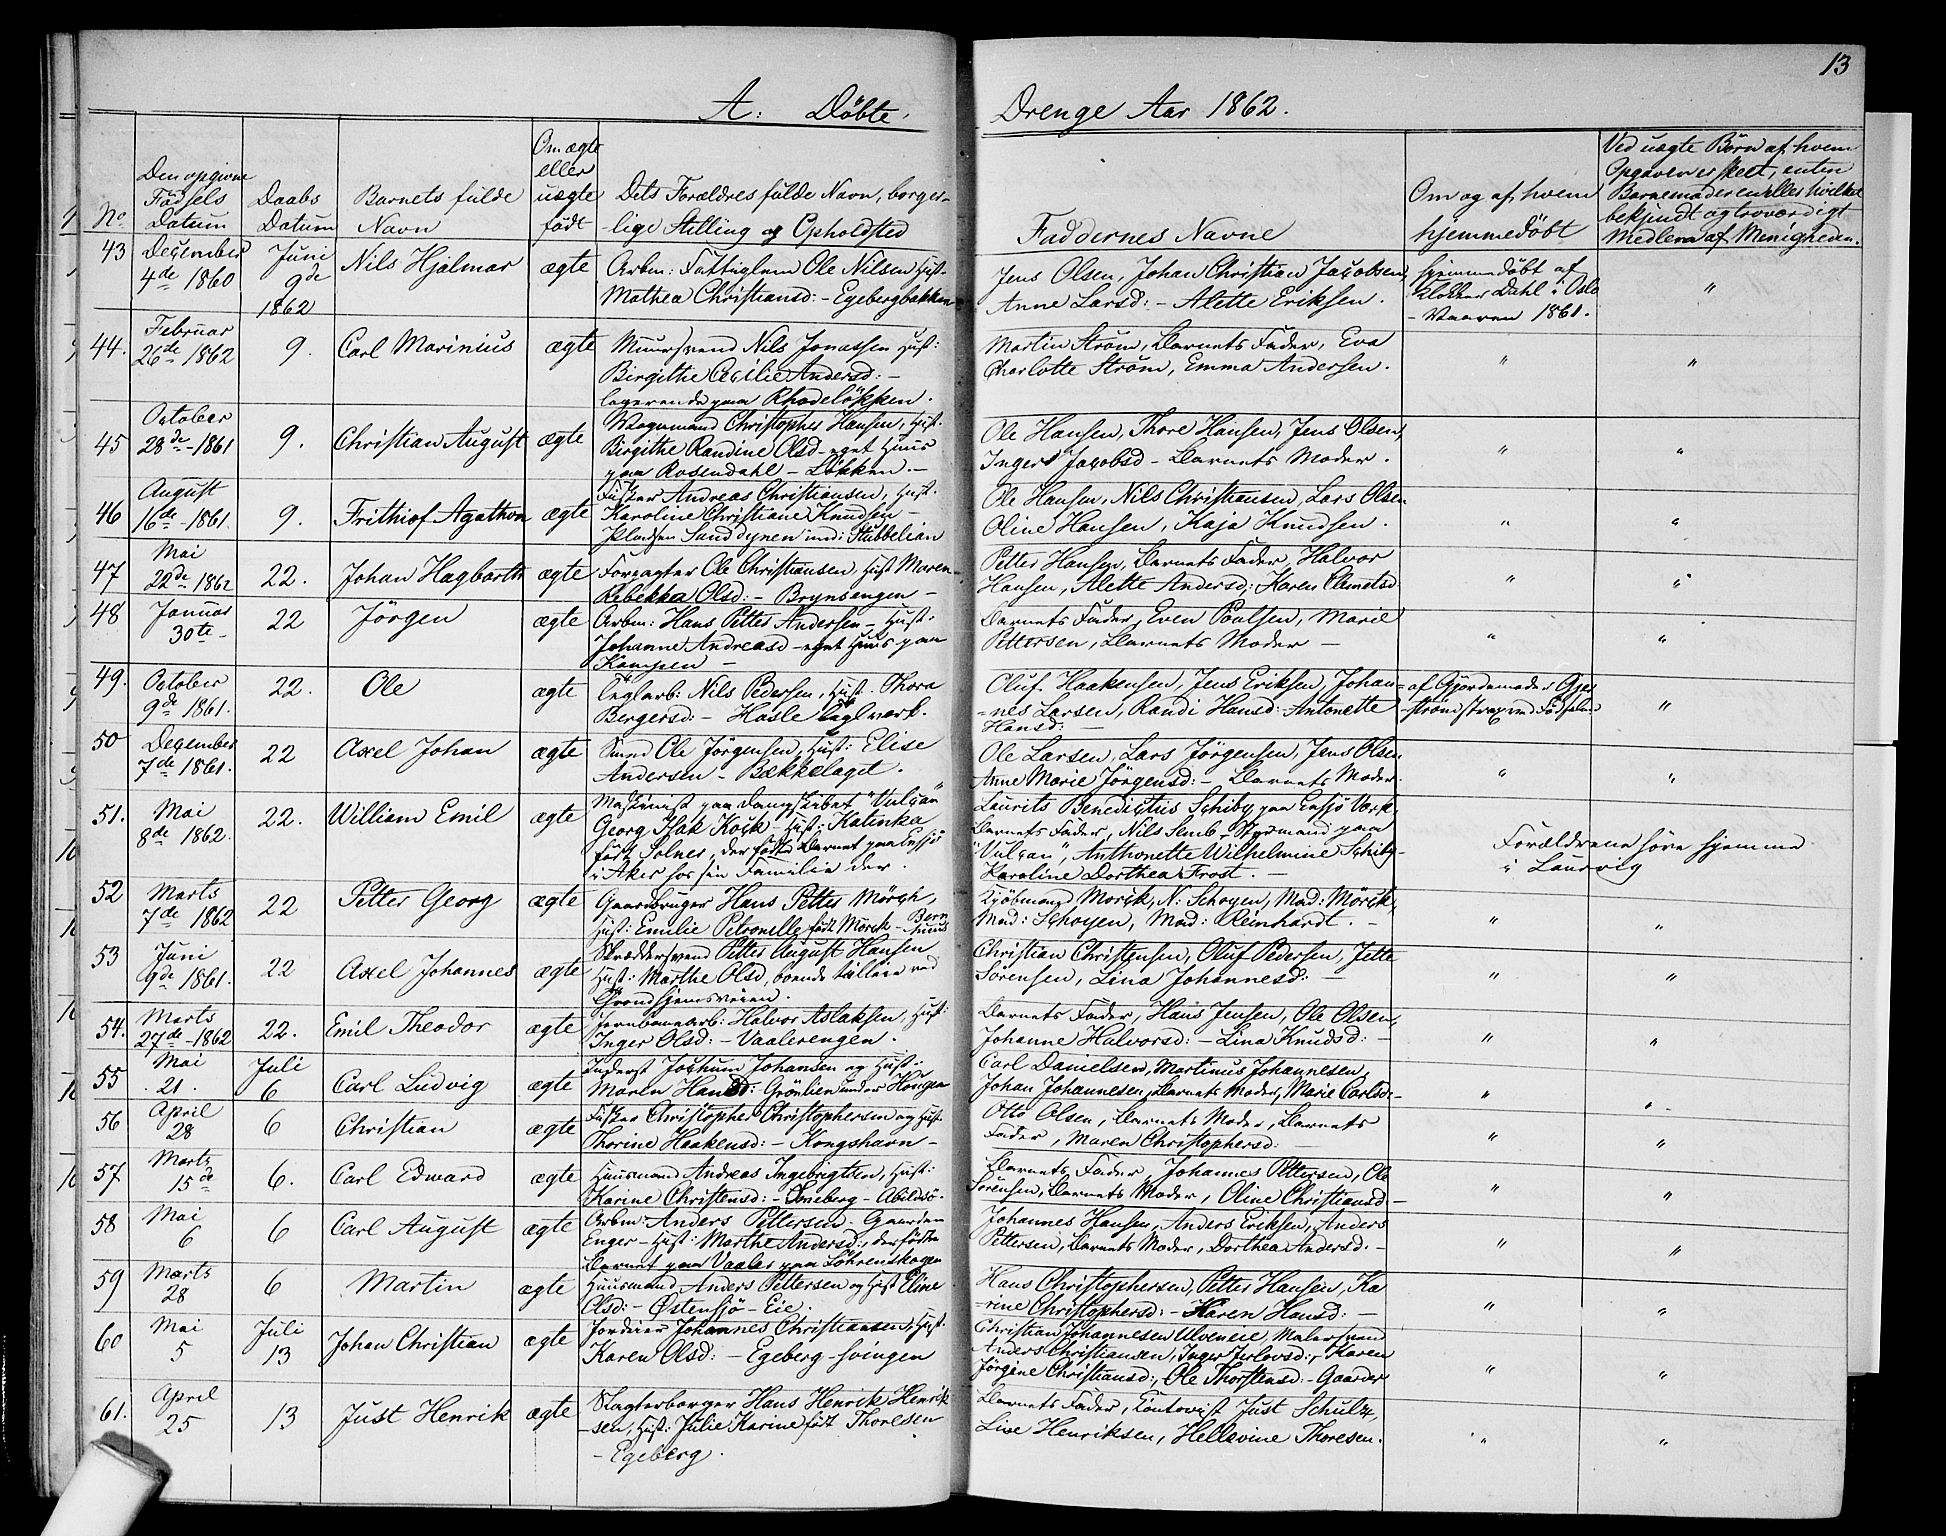 13
A: Döbte,
Drenge Aar 1862.
No
Den opgivne
Födsels
Datum
Daabs
Datum
Barnets fulde
Navn
Om ægte
eller
uægte
födt
Dets Forældres fulde Navn, borger-
-lige Stilling og Opholdsted
Faddernes Navne
Om og af hvem
hjemmedöbt
Ved uægte Börn af hvem
Opgaven er skeet, enten
Barnemoderen eller hvilket
bekjendt og troværdigt
Medlem af Menigheden.
43
December
4de 1860
Juni
9de
1862
Nils Hjalmar
ægte
Arbm: Fattiglem Ole Nilsen Hust-
Mathea Christiansd: - Egebergbakken
Jens Olsen, Johan Christian Jacobsen,
Anne Larsd: - Alette Eriksen.
hjemmedöbt af
Klokker Dahl i Oslo
- Vaaren 1861.
"
44.
Februar
26de 1862
9.
Carl Marinius
ægte
Muursvend Nils Jonassen Hust:
Birgithe Cecilie Andersd: -
logerende paa Rhodelökken.
Martin Ström, Barnets Fader, Eva
Charlotte Ström, Emma Andersen.
" "
45
October
28de - 1861
9.
Christian August
ægte
Vognmand Christopher Hansen, Hust.
Birgithe Randine Olsd - eget Huus
paa Rosendahl - Lökken. -
Ole Hansen, Thore Hansen, Jens Olsen,
Inger Jacobsd - Barnets Moder.
" "
46
August
16de - 1861.
9.
Frithiof Agathon
ægte
Fisker Andreas Christiansen, Hust.
Karoline Christiane Knudsen -
Pladsen Sanddynen und: Stubbelian
Ole Hansen, Nils Christiansen, Lars Olsen
Oline Hansen, Kaja Knudsen.
" "
47
Mai
22de - 1862
22.
Johan Hagbarth
ægte
Forpagter Ole Christiansen, Hust Maren
Rebekka Olsd: - Brynsengen -
Petter Hansen, Barnets Fader, Halvor
Hansen, Alette Andersd; Karen Clemetsd
" "
48
Januar
30te -
22
Jörgen
ægte
Arbm: Hans Petter Andersen - Hust:
Johanne Andreasd - eget Huus paa
Kampen -
Barnets Fader, Even Poulsen, Marie
Pettersen, Barnets Moder -
" "
49.
October
9de 1861.
22.
Ole
ægte
Teglarb: Nils Pedersen, Hust. Thora
Bergersd: - Hasle Teglverk.
Oluf Haakensen, Jens Eriksen, Johan-
-nes Larsen, Randi Hansd: Antonette
Hansd: -
af Gjordemoder Gjer-
-ström strax ved Födselen
"
50
December
7de 1861.
22
Axel Johan
ægte
Smed Ole Jörgensen, Hust: Elise
Andersen - Bækkelaget.
Ole Larsen, Lars Jörgensen, Jens Olsen
Anne Marie Jörgensd: - Barnets Moder.
" "
51.
Mai
8de 1862.
22.
William Emil
ægte
Maskinist paa Dampskibet "Vulcan"
Georg Isak Kock - Hust: Katinka
född Solnes, der födte Barnet paa Ensjö
i Aker hos sin Familie der
Laurits Benedictus Schiby paa Ensjö Værk,
Barnets Fader, Nils Semb - Styrmand paa
"Vulcan", Anthonette Wilhelmine Schiby
Karoline Dorthea Frost. -
Forældrene höre hjemme
i Laurvig
52
Marts
7de 1862
22
Petter Georg
ægte
Gaardbruger Hans Petter Mörch,
Hust: Emilie Petronelle född Mörck - Bern
huus
Kjöbmand Morck, N: Schoyen, Mad: Mörck,
Mad: Schoyen, Mad: Reinhardt. -
" "
53
Juni
9de 1861.
22
Axel Johannes
ægte
Skræddersvend Petter August Hansen
Hust: Marthe Olsd, boende tilleie ved
Trondhjemsveien.
Christian Christensen, Oluf Pedersen, Jette
Sörensen, Lina Johannesd: -
" "
54.
Marts
27de - 1862
22.
Emil Theodor
ægte
Jernbanearb: Halvor Aslaksen, Hust:
Inger Olsd: - Vaalerengen.
Barnets Fader, Hans Jensen, Ole Olsen,
Johanne Halvorsd: - Lina Knudsd: -
" "
55
Mai
21.
Juli
6
Carl Ludvig
ægte
Inderst Jochum Johansen og Hust:
Maren Hansd: Grönlien under Haugen
Carl Danielsen, Martinus Johannesen,
Johan Johannesen, Barnets Moder, Marie Carlsd: -
" "
56
April
28
6
Christian
ægte
Fisker Christopher Christophersen og Hust.
Thorine Haakensd: - Kongshavn -
Otto Olsen, Barnets Moder, Barnets
Fader, Maren Christophersd:
" "
57
Marts
15de
6.
Carl Edward
ægte
Huusmand Andreas Ingebrigtsen, Hust:
Karine Christensd: - Steneberg - Abildsö.
Barnets Fader, Johannes Pettersen, Ole
Sörensen, Barnets Moder, Oline Christiansd -
" "
58
Mai
6
6
Carl August
ægte
Arbm: Anders Pettersen - Gaarden
Enger - Hust: Marthe Andersd:, der födte
Barnet paa Vaaler paa Löhrenskogen
Johannes Hansen, Anders Eriksen, Anders
Pettersen, Barnets Moder, Dorthea Andersd. -
" "
59
Marts
28
6
Martin
ægte
Huusmand Anders Pettersen og Hust Eline
Olsd: - Østensjö - Eie.
Hans Christophersen, Petter Hansen, Ka
-rine Christophersd: - Karen Hansd: -
" "
60
Mai
5
Juli
13
Johan Christian
ægte
Jordeier Johannes Christiansen, Hust.
Karen Olsd: - Egeberg - svingen
Christian Johannesen Ulveneie, Malersvend
Anders Christiansen, Inger Iverlovsd:, Karen
Jörgine Christiansd:, Ole Thorstensd: - Gaarder
" "
61.
April
25
13
Just Henrik
ægte
Slagterborger Hans Henrik Henrik-
-sen, Hust: Julie Karine född Thoresen
- Egeberg.
Barnets Fader, Contorist Just Schultz,
Live Henriksen, Hellevine Thoresen.
" "